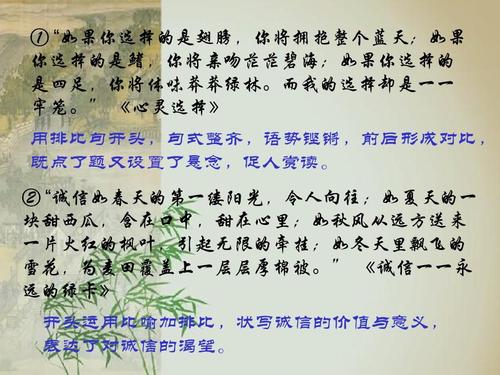 ①“如果你选择的是翅膀，你将拥抱整个蓝天；如果
你选择的是鳍，你将亲吻茫茫碧海；如果你选择的
是四足，你将体味莽莽绿林。而我的选择却是——
牢笼。” 《心灵选择》
用排比句开头，句式整齐，语势铿锵，前后形成对比，
既点了题又设置了悬念，促人赏读。
②“诚信如春天的第一缕阳光，令人向往；如夏天的一
块甜西瓜，含在口中，甜在心里；如秋风从远方送来
一片火红的枫叶，引起无限的牵挂；如冬天里飘飞的
雪花，为麦田覆盖上一层层厚棉被。” 《诚信——永
远的绿卡》
开头运用比喻加排比，状写诚信的价值与意义，
表达了对诚信的渴望。